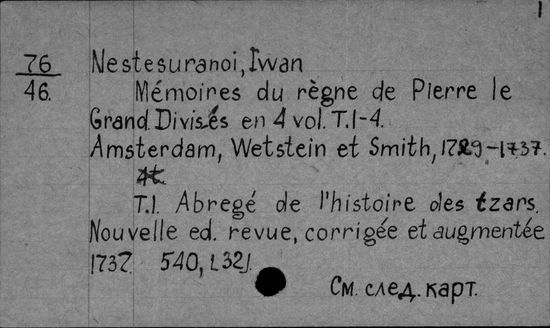 1
76 Nestesuranoi, Iwan
46. Mémoires du règne de Pierre le
Grand. Divisés en 4 vol. T.1-4.
Amsterdam, Wetstein et Smith, 1729-1737.
4t
T.1. Abregé de l'histoire des tzars.
Nouvelle ed. revue, corrigée et augmentée
1737. 540, [32].
См. след. карт.